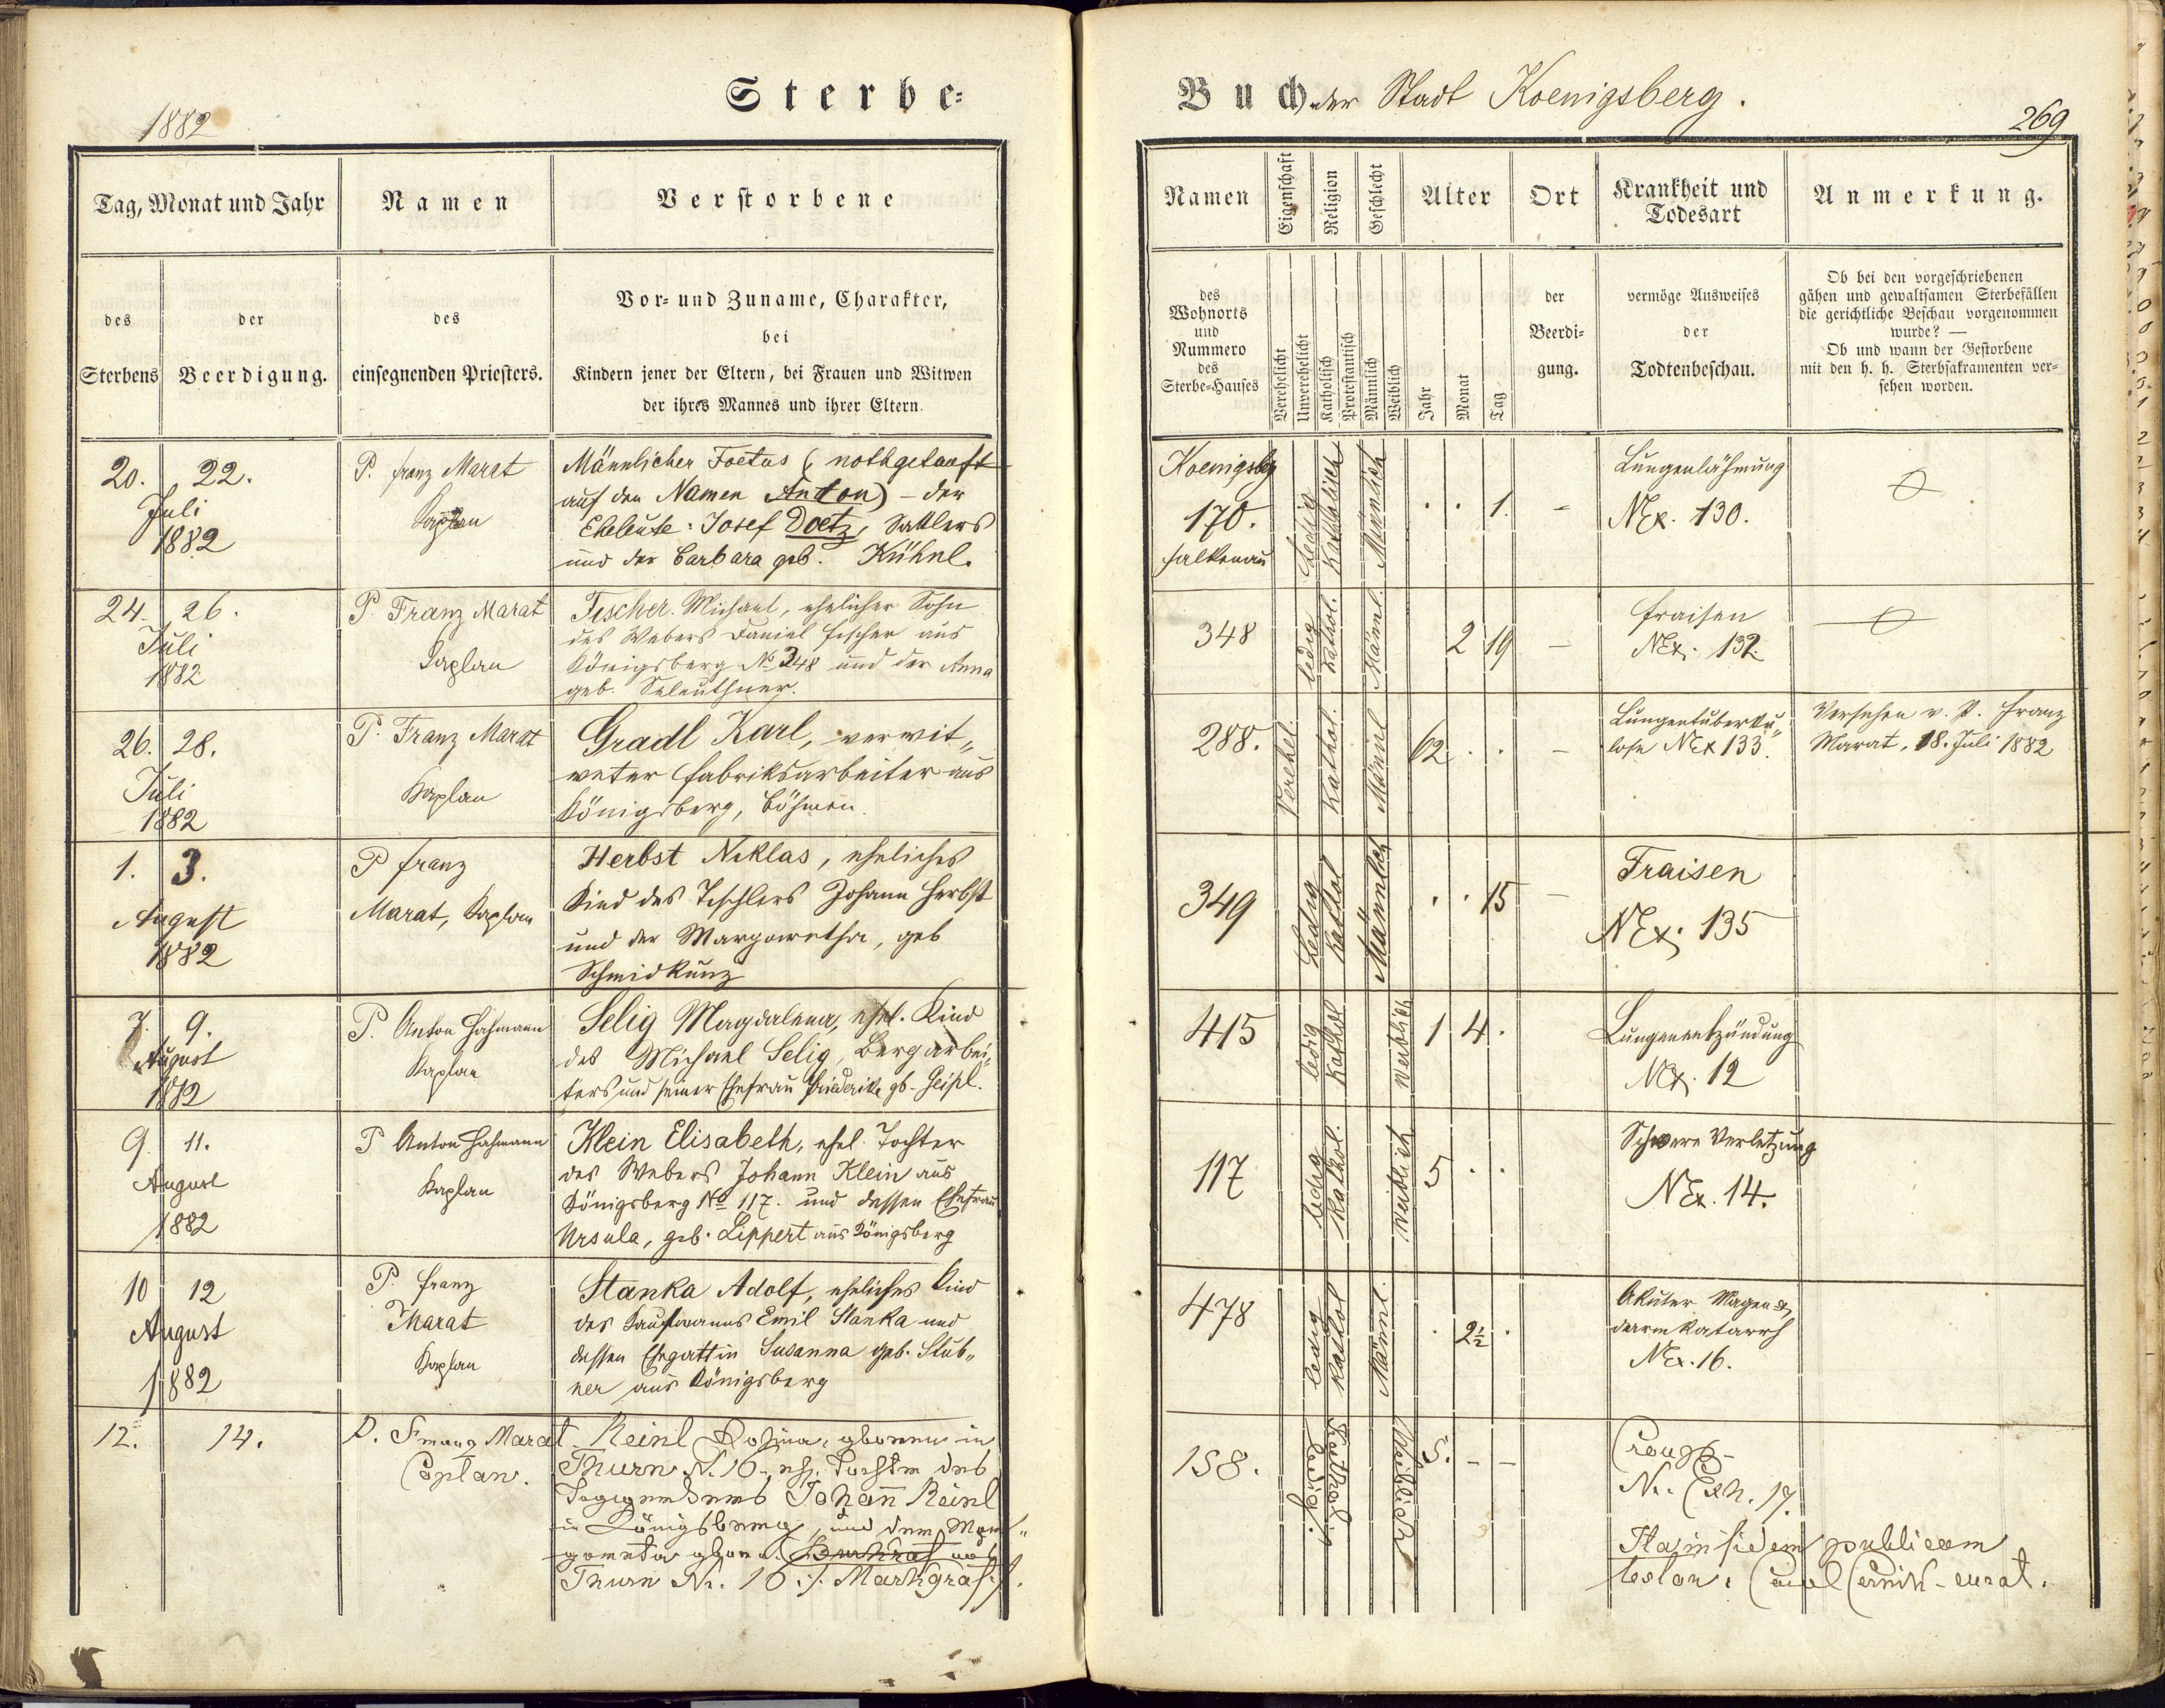 Sterbe=
1882
Tag, Monat und Jahr
Namen
Verstorbene
des
Sterbens
der
Beerdigung.
des
einsegnenden Priesters.
Vor= und Zuname, Charakter,
bei
Kindern jener der Eltern, bei Frauen und Witwen
der ihres Mannes und ihrer Eltern.
20. 22.
Juli
1882
P. Franz Marat
Kaplan
Männlicher Foetus (nothgetauft
auf den Namen Anton) – der
Eheleute: Josef Doetz, Sattlers
und der Barbara geb. Kühnl.
24. 26.
Juli
1882
P. Franz Marat
Kaplan
Fischer Michael, ehelicher Sohn
des Webers Daniel Fischer aus
Königsberg No 348 und der Anna
geb.
26. 28.
Juli
1882
P. Franz Marat
Kaplan
Gradl Karl, verwit„
weter Fabriksarbeiter aus
Königsberg, Böhmen.
1. 3.
August
1882
P Franz
Marat, Kaplan
Herbst Niklas, eheliches
Kind des Tischlers Johann Herbst
und der Margaretha, geb
Schmidkunz
7. 9.
August
1882
P. Anton Hahmann
Kaplan
Selig Magdalena, ehel. Kind
des Michael Selig, Bergarbei„
ters und seiner Ehefrau Friederike gb. Geipl.
9. 11.
August
1882
P Anton Hahmann
Kaplan
Klein Elisabeth, ehel. Tochter
des Webers Johann Klein aus
Königsberg No 117. und dessen Ehefrau
Ursula, geb. Lippert aus Königsberg
10 12
August
1882
P. Franz
Marat
Kaplan
Stanka Adolf, eheliches Kind
des Kaufmanns Emil Stanka und
dessen Ehegattin Susanna geb. Stub„
ner aus Königsberg
12. 14.
P. Franz Marat
Caplan.
Reinl Rosina, geboren in
Thurn N. 16., eh. Tochter des
Johann Reinl
in Königsberg, und der Mar„
gareta geboren. aus
Thurn Nr. 16 ./. Markgraf ./.
Buch der Stadt Koenigsberg.
269
Namen
Eigenschaft
Religion
Geschlecht
Alter
Ort
Krankheit und
Todesart
Anmerkung.
des
Wohnorts
und
Nummero
des
Sterbe=Hauses
Verehelicht
Unverehelicht
Katholisch
Protestantisch
Männlich
Weiblich
Jahr
Monat
Tag
der
Beerdi=
gung.
vermöge Ausweises
der
Todtenbeschau.
Ob bei den vorgeschriebenen
gähen und gewaltsamen Sterbefällen
die gerichtliche Beschau vorgenommen
wurde? —
Ob und wann der Gestorbene
mit den h. h. Sterbsakramenten ver=
sehen worden.
Koenigsbg
170.
Falkenau
ledig
Katholisch
Männlich
. . 1. -
Lungenlähmung
NEx. 130.
348
ledig
kathol.
Männl.
2 19 -
Fraisen
NEx. 132.
288.
Verehel.
Kathol.
Mänl
62 . . -
Lungentuberku„
lose NEx 133.
Versehen v. P. Franz
Marat, 18. Juli 1882
349
Ledig
kathol
Männlich
. . 15 -
Fraisen
NEx. 135
415
ledig
Kathol
Weiblich
1 4 .
Lungenentzündung
NEx. 12
117
ledig
Kathol.
weiblich
5 . .
Schwere Verletzung
NEx. 14.
478
ledig
kathol
Männl.
. 2½ .
Akuter Magen &
darmkatarrh
NEx. 16.
158.
Ledig.
Kathol.
Weiblich
5. - -
Croup
Nr. Exh. 17.
Ita in fidem publicam
testor: